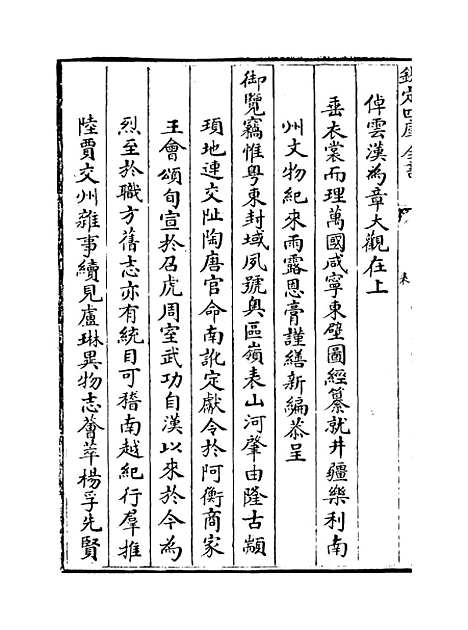 欽定四庫全書
倬雲漢為章大觀在上
垂衣裳而理萬國咸寧東壁圖經纂就井疆樂利南
州文物紀來雨露恩膏謹繕新編恭呈
御覽竊惟粤東封域夙號奥區嶺表山河肇由隆古顓
頊地連交阯陶唐官命南訛定獻令於阿衡商家
王會頌旬宣於召虎周室武功自漢以來於今為
烈至於職方舊志亦有統目可稽南越紀行羣推
陸賈交州雜事續見盧琳異物志薈萃楊孚先賢